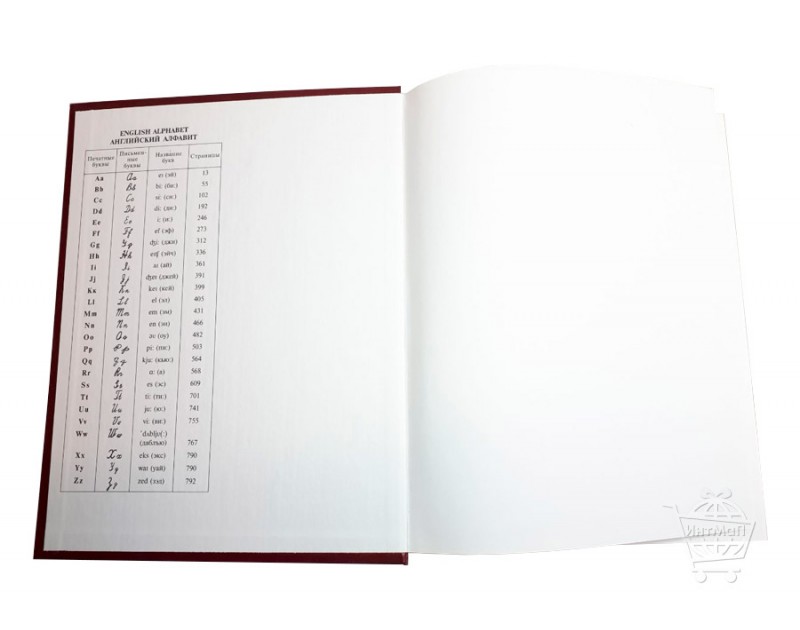 ENGLISH ALPHABET
АНГЛИЙСКИЙ АЛФАВИТ
Печатные буквы Письмен-ные буквы Название букв Страницы
Aa Aa eɪ (эй) 13
Bb Bb bi: (би:) 55
Cc Cc si: (си:) 102
Dd Dd di: (ди:) 192
Ee Ee i: (и:) 246
Ff Ff ef (эф) 273
Gg Gg ʤi: (джи) 312
Hh Hh eɪtʃ (эйч) 336
Ii Ii aɪ (ай) 361
Jj Jj ʤeɪ (джей) 391
Kk Kk keɪ (кей) 399
Ll Ll el (эл) 405
Mm Mm em (эм) 431
Nn Nn en (эн) 466
Oo Oo əʊ (оу) 482
Pp Pp pi: (пи:) 503
Qq Qq kju: (кью:) 564
Rr Rr ɑ: (а) 568
Ss Ss es (эс) 609
Tt Tt ti: (ти:) 701
Uu Uu ju: (ю:) 741
Vv Vv vi: (ви:) 755
Ww Ww 'dʌblju(:) (даблью) 767
Xx Xx eks (экс) 790
Yy Yy waɪ (уай) 790
Zz Zz zed (зэд) 792
ИнтМаг